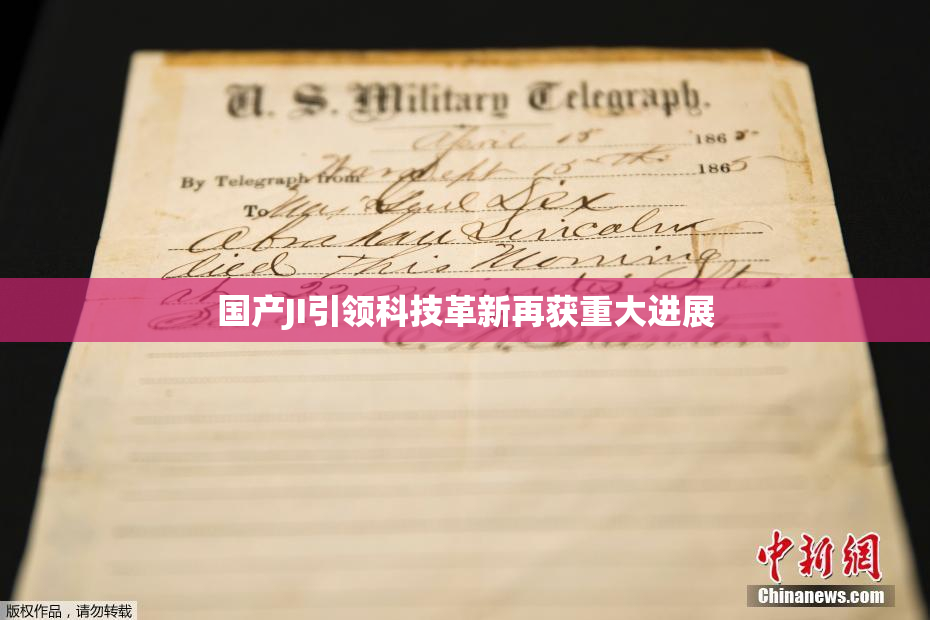 U. S. Military Telegraph.
April 15 1865
By Telegraph from War Dept 15th 1865
To Maj Genl Dix
Abraham Lincoln
died This Morning
at 22 minutes after
国产JI引领科技革新再获重大进展
中新网
Chinanews.com
版权作品，请勿转载